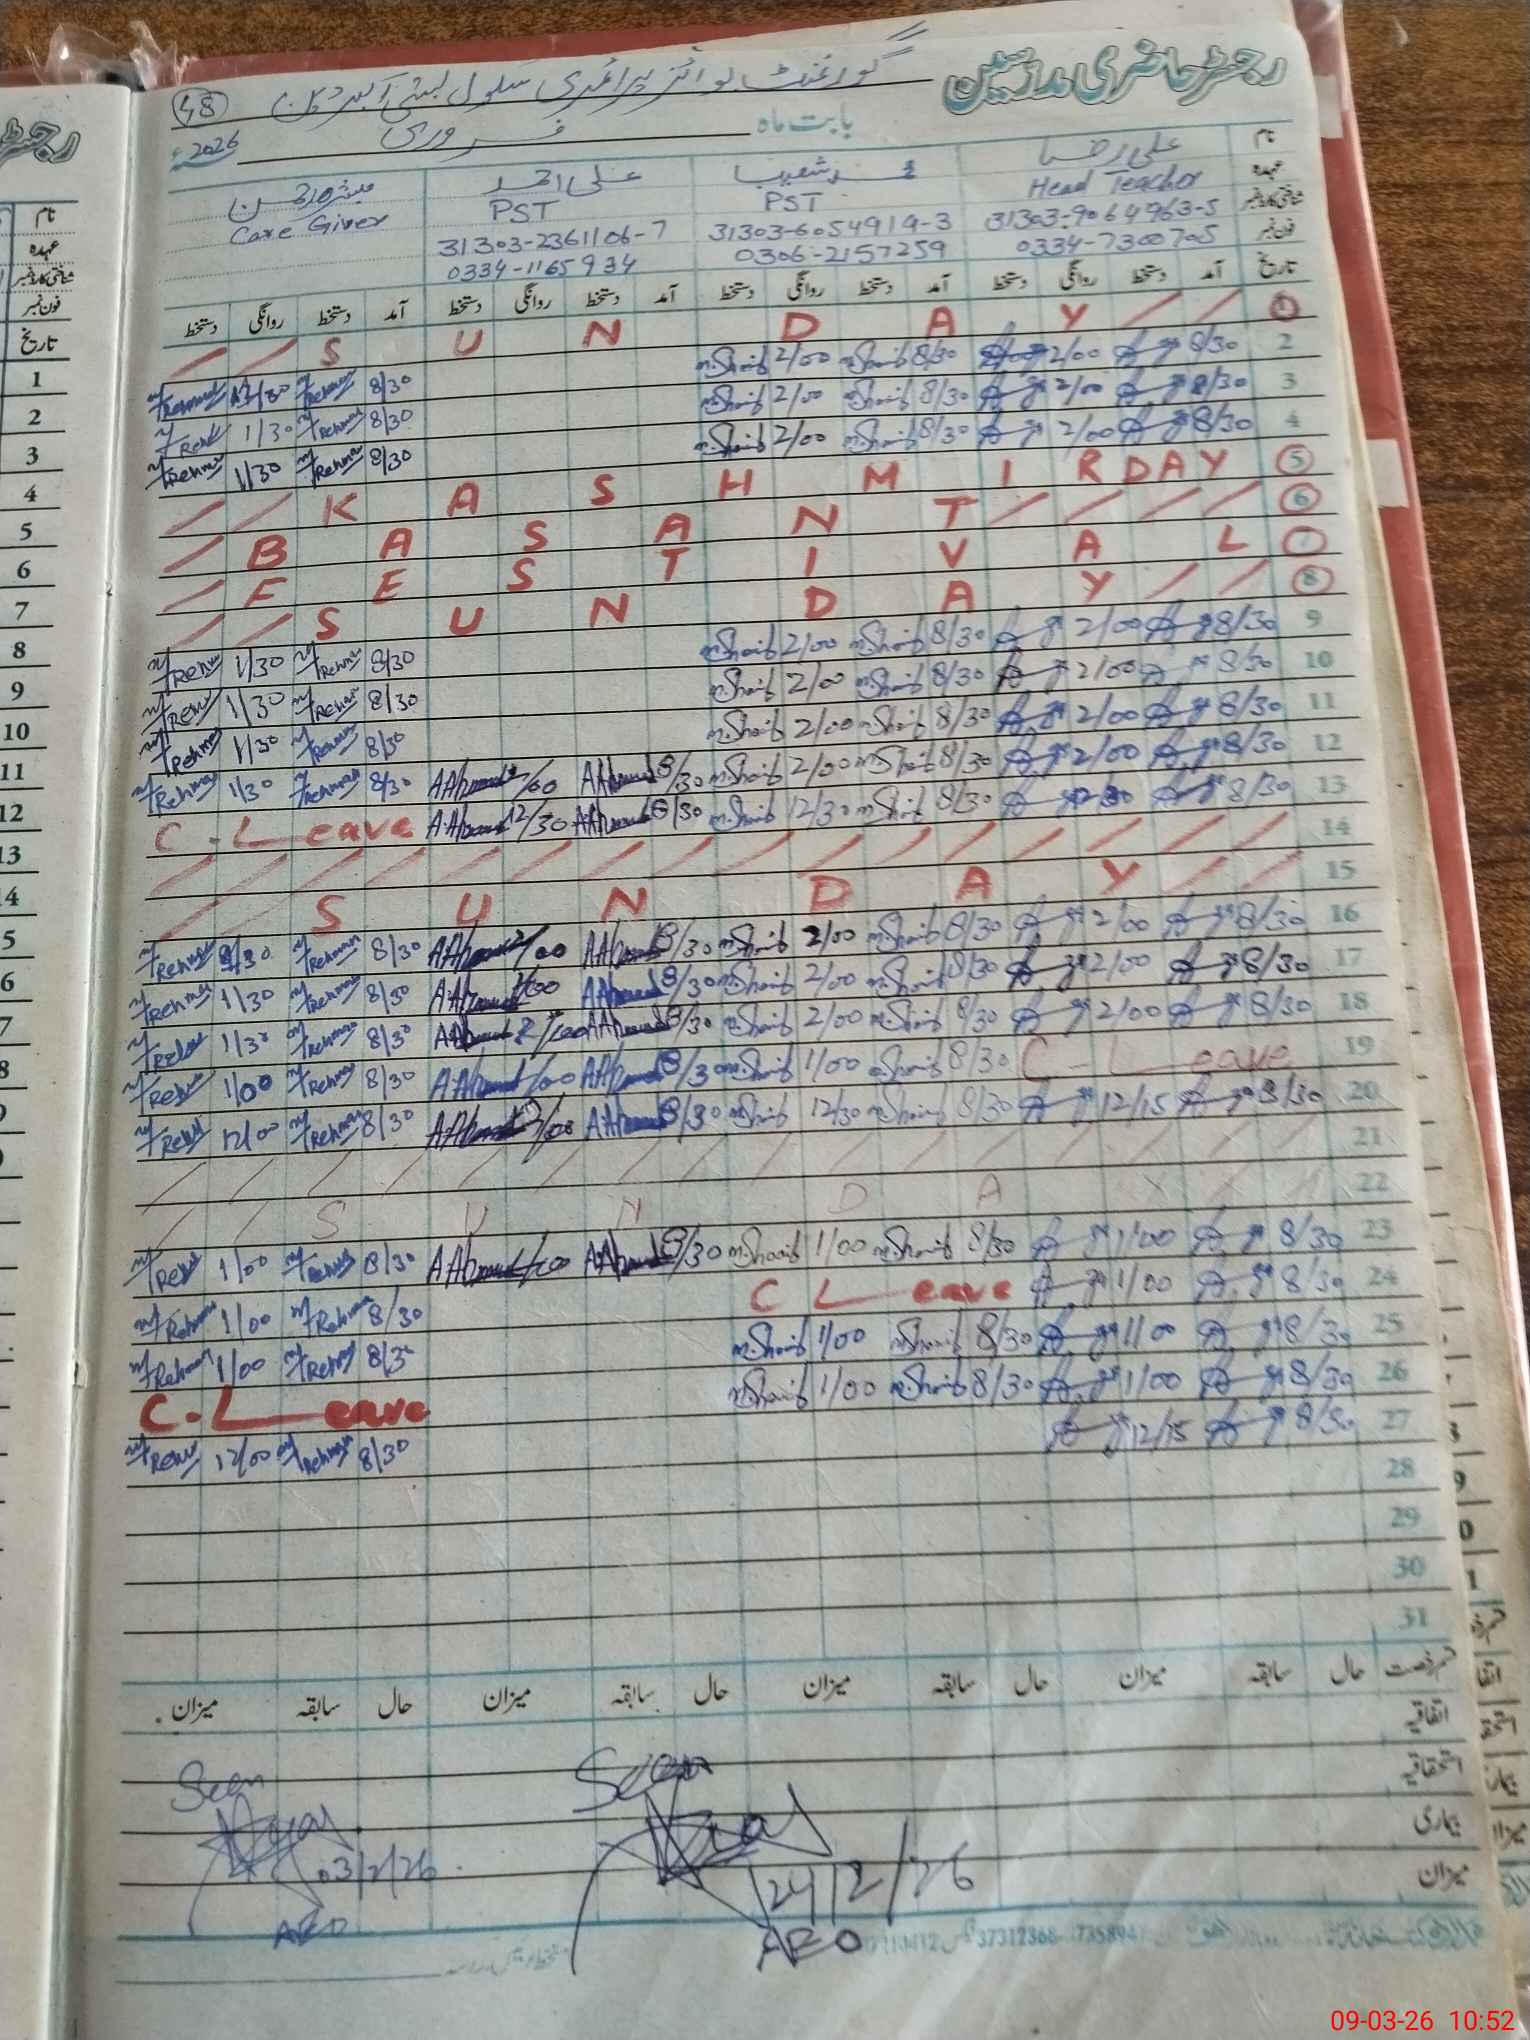 رجسٹر حاضری مدرسین
گورنمنٹ بوائز پرائمری سکول بستی
48
بابت ماہ فروری 2026ء
نام علی رضا محمد شعیب علی احمد مبشر الرحمن
عہدہ Head Teacher PST PST Care Giver
شناختی کارڈ نمبر 31303-9064963-5 31303-6054919-3 31303-2361106-7
فون نمبر 0334-7300705 0306-2157259 0334-1165934
تاریخ آمد دستخط روانگی دستخط آمد دستخط روانگی دستخط آمد دستخط روانگی دستخط آمد دستخط روانگی دستخط
1 S U N D A Y
2 8/30 2/00 8/30 M.Shoaib 2/00 M.Shoaib 8/30 M Rehman 1/30 M Rehman
3 8/30 2/00 8/30 M.Shoaib 2/00 M.Shoaib 8/30 M Rehman 1/30 M Rehman
4 8/30 2/00 8/30 M.Shoaib 2/00 M.Shoaib 8/30 M Rehman 1/30 M Rehman
5 K A S H M I R D A Y
6 B A S A N T
7 F E S T I V A L
8 S U N D A Y
9 8/30 2/00 8/30 M.Shoaib 2/00 M.Shoaib 8/30 M Rehman 1/30 M Rehman
10 8/30 2/00 8/30 M.Shoaib 2/00 M.Shoaib 8/30 M Rehman 1/30 M Rehman
11 8/30 2/00 8/30 M.Shoaib 2/00 M.Shoaib 8/30 M Rehman 1/30 M Rehman
12 8/30 2/00 8/30 M.Shoaib 2/00 M.Shoaib 8/30 AAhmad 2/00 AAhmad 8/30 M Rehman 1/30 M Rehman
13 8/30 8/30 M.Shoaib 12/30 M.Shoaib 8/30 AAhmad 12/30 AAhmad C-Leave
14
15 S U N D A Y
16 8/30 2/00 8/30 M.Shoaib 2/00 M.Shoaib 8/30 AAhmad 2/00 AAhmad 8/30 M Rehman M Rehman
17 8/30 2/00 8/30 M.Shoaib 2/00 M.Shoaib 8/30 AAhmad AAhmad 8/30 M Rehman 1/30 M Rehman
18 8/30 2/00 8/30 M.Shoaib 2/00 M.Shoaib 8/30 AAhmad 2/00 AAhmad 8/30 M Rehman 1/30 M Rehman
19 C-Leave 8/30 M.Shoaib 1/00 M.Shoaib 8/30 AAhmad 1/00 AAhmad 8/30 M Rehman 1/00 M Rehman
20 8/30 12/15 8/30 M.Shoaib 12/30 M.Shoaib 8/30 AAhmad AAhmad 8/30 M Rehman 12/00 M Rehman
21
22 S U N D A Y
23 8/30 1/00 8/30 M.Shoaib 1/00 M.Shoaib 8/30 AAhmad 1/00 AAhmad 8/30 M Rehman 1/00 M Rehman
24 8/30 1/00 C Leave 8/30 M Rehman 1/00 M Rehman
25 8/30 1/00 8/30 M.Shoaib 1/00 M.Shoaib 8/30 M Rehman 1/00 M Rehman
26 8/30 1/00 8/30 M.Shoaib 1/00 M.Shoaib C-Leave
27 8/30 12/15 8/30 M Rehman 12/00 M Rehman
28
29
30
31
قسم رخصت حال سابقہ میزان حال سابقہ میزان حال سابقہ میزان حال سابقہ میزان
اتفاقیہ
استحقاقیہ
بیماری
میزان
Seen
03/2/26
AEO
Seen
24/2/26
AEO
37312368
09-03-26 10:52